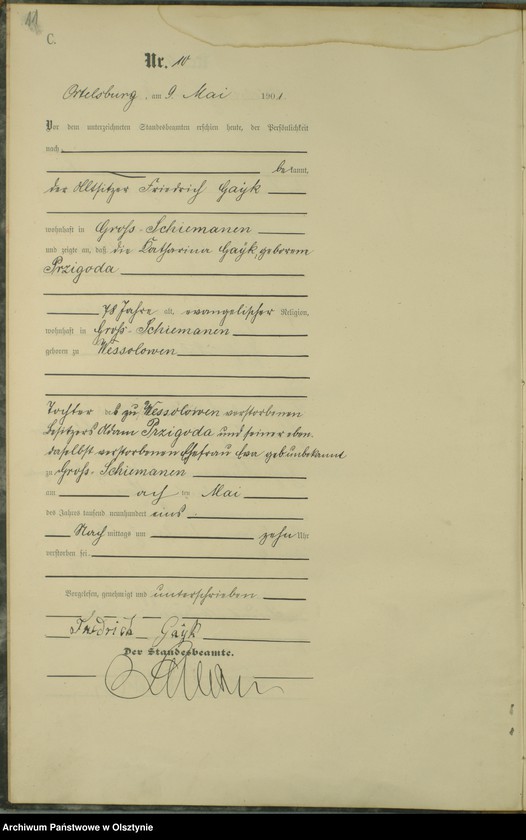 11
C.
Nr. 10
Ortelsburg, am 9. Mai 1901.
Vor dem unterzeichneten Standesbeamten erschien heute, der Persönlichkeit
nach
bekannt,
der Altsitzer Friedrich Gayk
wohnhaft in Groß-Schiemanen
und zeigte an, daß die Catharina Gayk, geborene
Przigoda
78 Jahre alt, evangelischer Religion,
wohnhaft in Groß-Schiemanen
geboren zu Wessolowen
Tochter des zu Wessolowen verstorbenen
Besitzers Adam Przigoda und seiner eben
daselbst verstorbenen Ehefrau Eva geb. unbekannt
zu Groß-Schiemanen
am acht ten Mai
des Jahres tausend neunhundert eins
Nachmittags um zehn Uhr
verstorben sei.
Vorgelesen, genehmigt und unterschrieben
Friedrich Gayk
Der Standesbeamte.
Archiwum Państwowe w Olsztynie